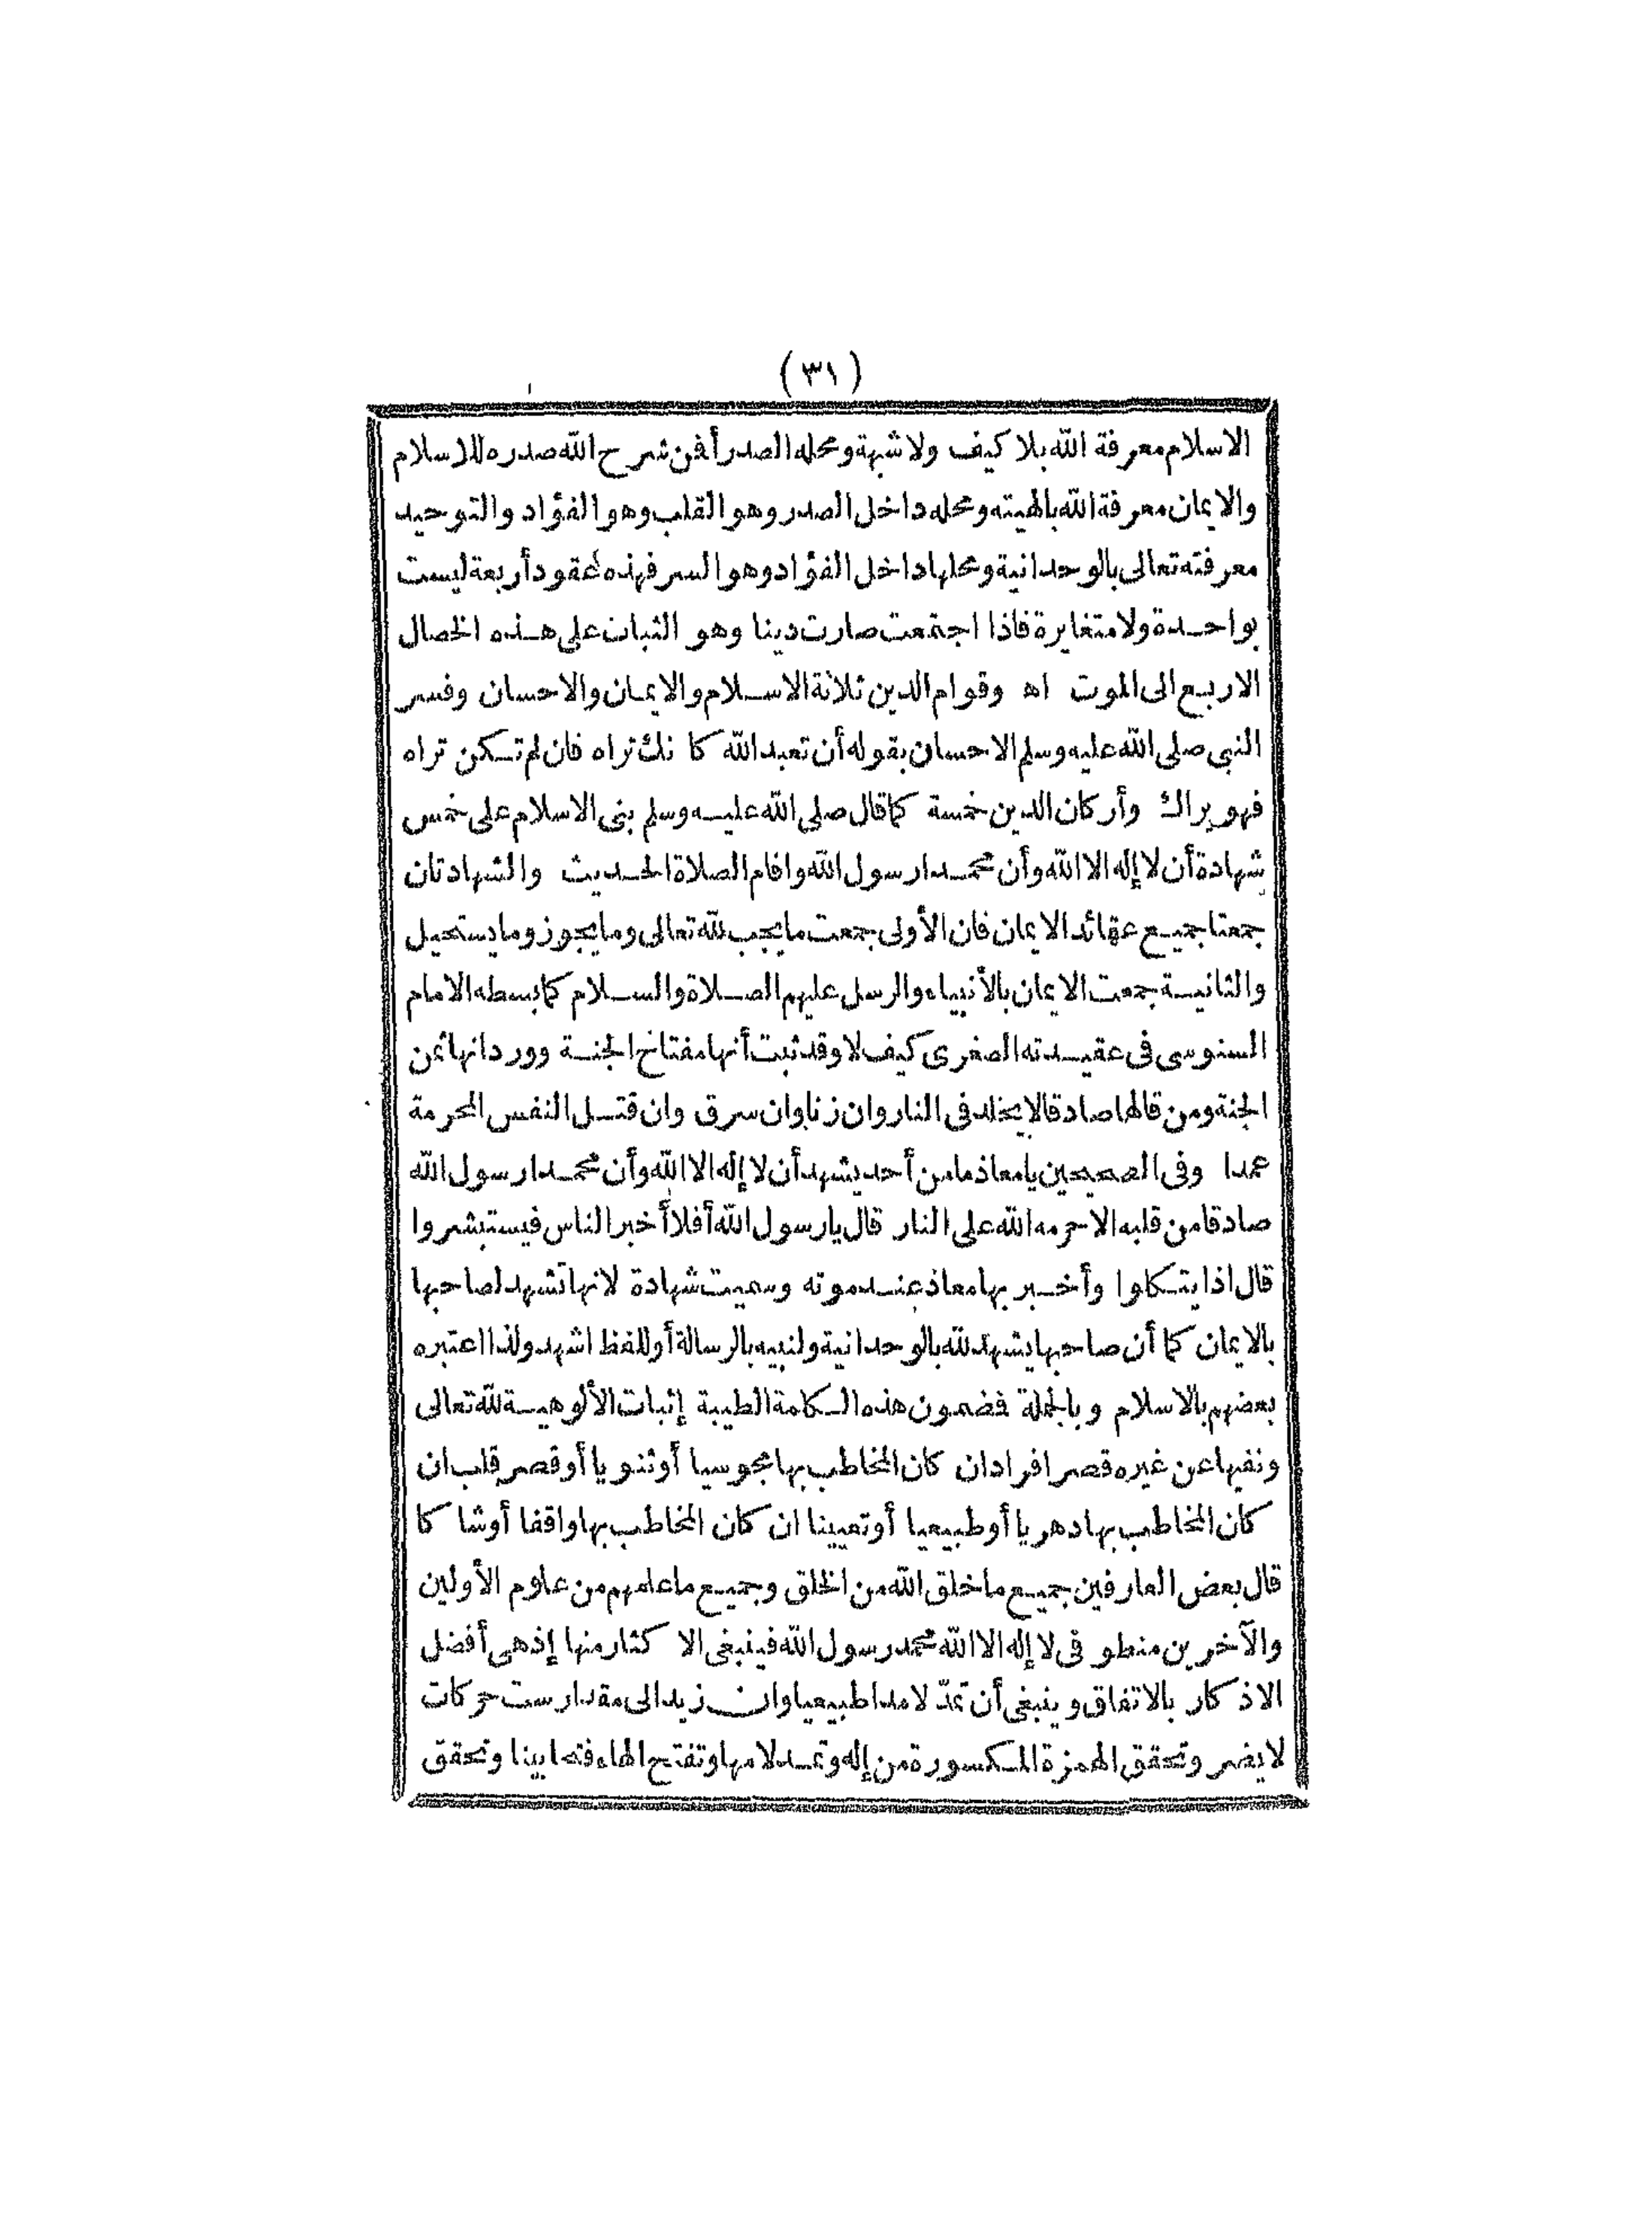 (٣١)
الاسلام معرفة الله بلا كيف ولا شبهة ومحله الصدر أفمن شرح الله صدره للاسلام
والايمان معرفة الله بالهيته ومحله داخل الصدر وهو القلب وهو الفؤاد والتوحيد
معرفته تعالى بالوحدانية ومحلها داخل الفؤاد وهو السر فهذه عقود أربعة ليست
بواحدة ولا متغايرة فاذا اجتمعت صارت دينا وهو الثبات على هذه الخصال
الاربع الى الموت اه وقوام الدين ثلاثة الاسلام والايمان والاحسان وفسر
النبى صلى الله عليه وسلم الاحسان بقوله أن تعبد الله كانك تراه فان لم تكن تراه
فهو يراك وأركان الدين خمسة كما قال صلى الله عليه وسلم بنى الاسلام على خمس
شهادة أن لا إله الا الله وأن محمدا رسول الله واقام الصلاة الحديث والشهادتان
جمعتا جميع عقائد الايمان فان الأولى جمعت ما يجب لله تعالى وما يجوز وما يستحيل
والثانية جمعت الايمان بالأنبياء والرسل عليهم الصلاة والسلام كما بسطه الامام
السنوسى فى عقيدته الصغرى كيف لا وقد ثبت أنها مفتاح الجنة وورد انها ثمن
الجنة ومن قالها صادقا لا يخلد فى النار وان زنا وان سرق وان قتل النفس المحرمة
عمدا وفى الصحيحين يا معاذ ما من أحد يشهد أن لا إله الا الله وأن محمدا رسول الله
صادقا من قلبه الا حرمه الله على النار قال يا رسول الله أفلا أخبر الناس فيستبشروا
قال اذا يتكلوا وأخبر بها معاذ عند موته وسميت شهادة لانها تشهد لصاحبها
بالايمان كما أن صاحبها يشهد لله بالوحدانية ولنبيه بالرسالة أو للفظ اشهد ولذا اعتبره
بعضهم بالاسلام وبالجملة فضمون هذه الكلمة الطيبة إثبات الألوهية لله تعالى
ونفيها عن غيره قصر افراد ان كان المخاطب بها مجوسيا أو ثنويا أو قصر قلب ان
كان المخاطب بها دهريا أو طبيعيا أو تعيينا ان كان المخاطب بها واقفا أو شاكا
قال بعض العارفين جميع ما خلق الله من الخلق وجميع ما علمهم من علوم الأولين
والآخرين منطو فى لا إله الا الله محمد رسول الله فينبغى الاكثار منها إذ هى أفضل
الاذكار بالاتفاق وينبغى أن تمدّ لا مدا طبيعيا وان زيد الى مقدار ست حركات
لا يضر وتحقق الهمزة المكسورة من إله وتمد لامها وتفتح الهاء فتحا بينا وتحقق